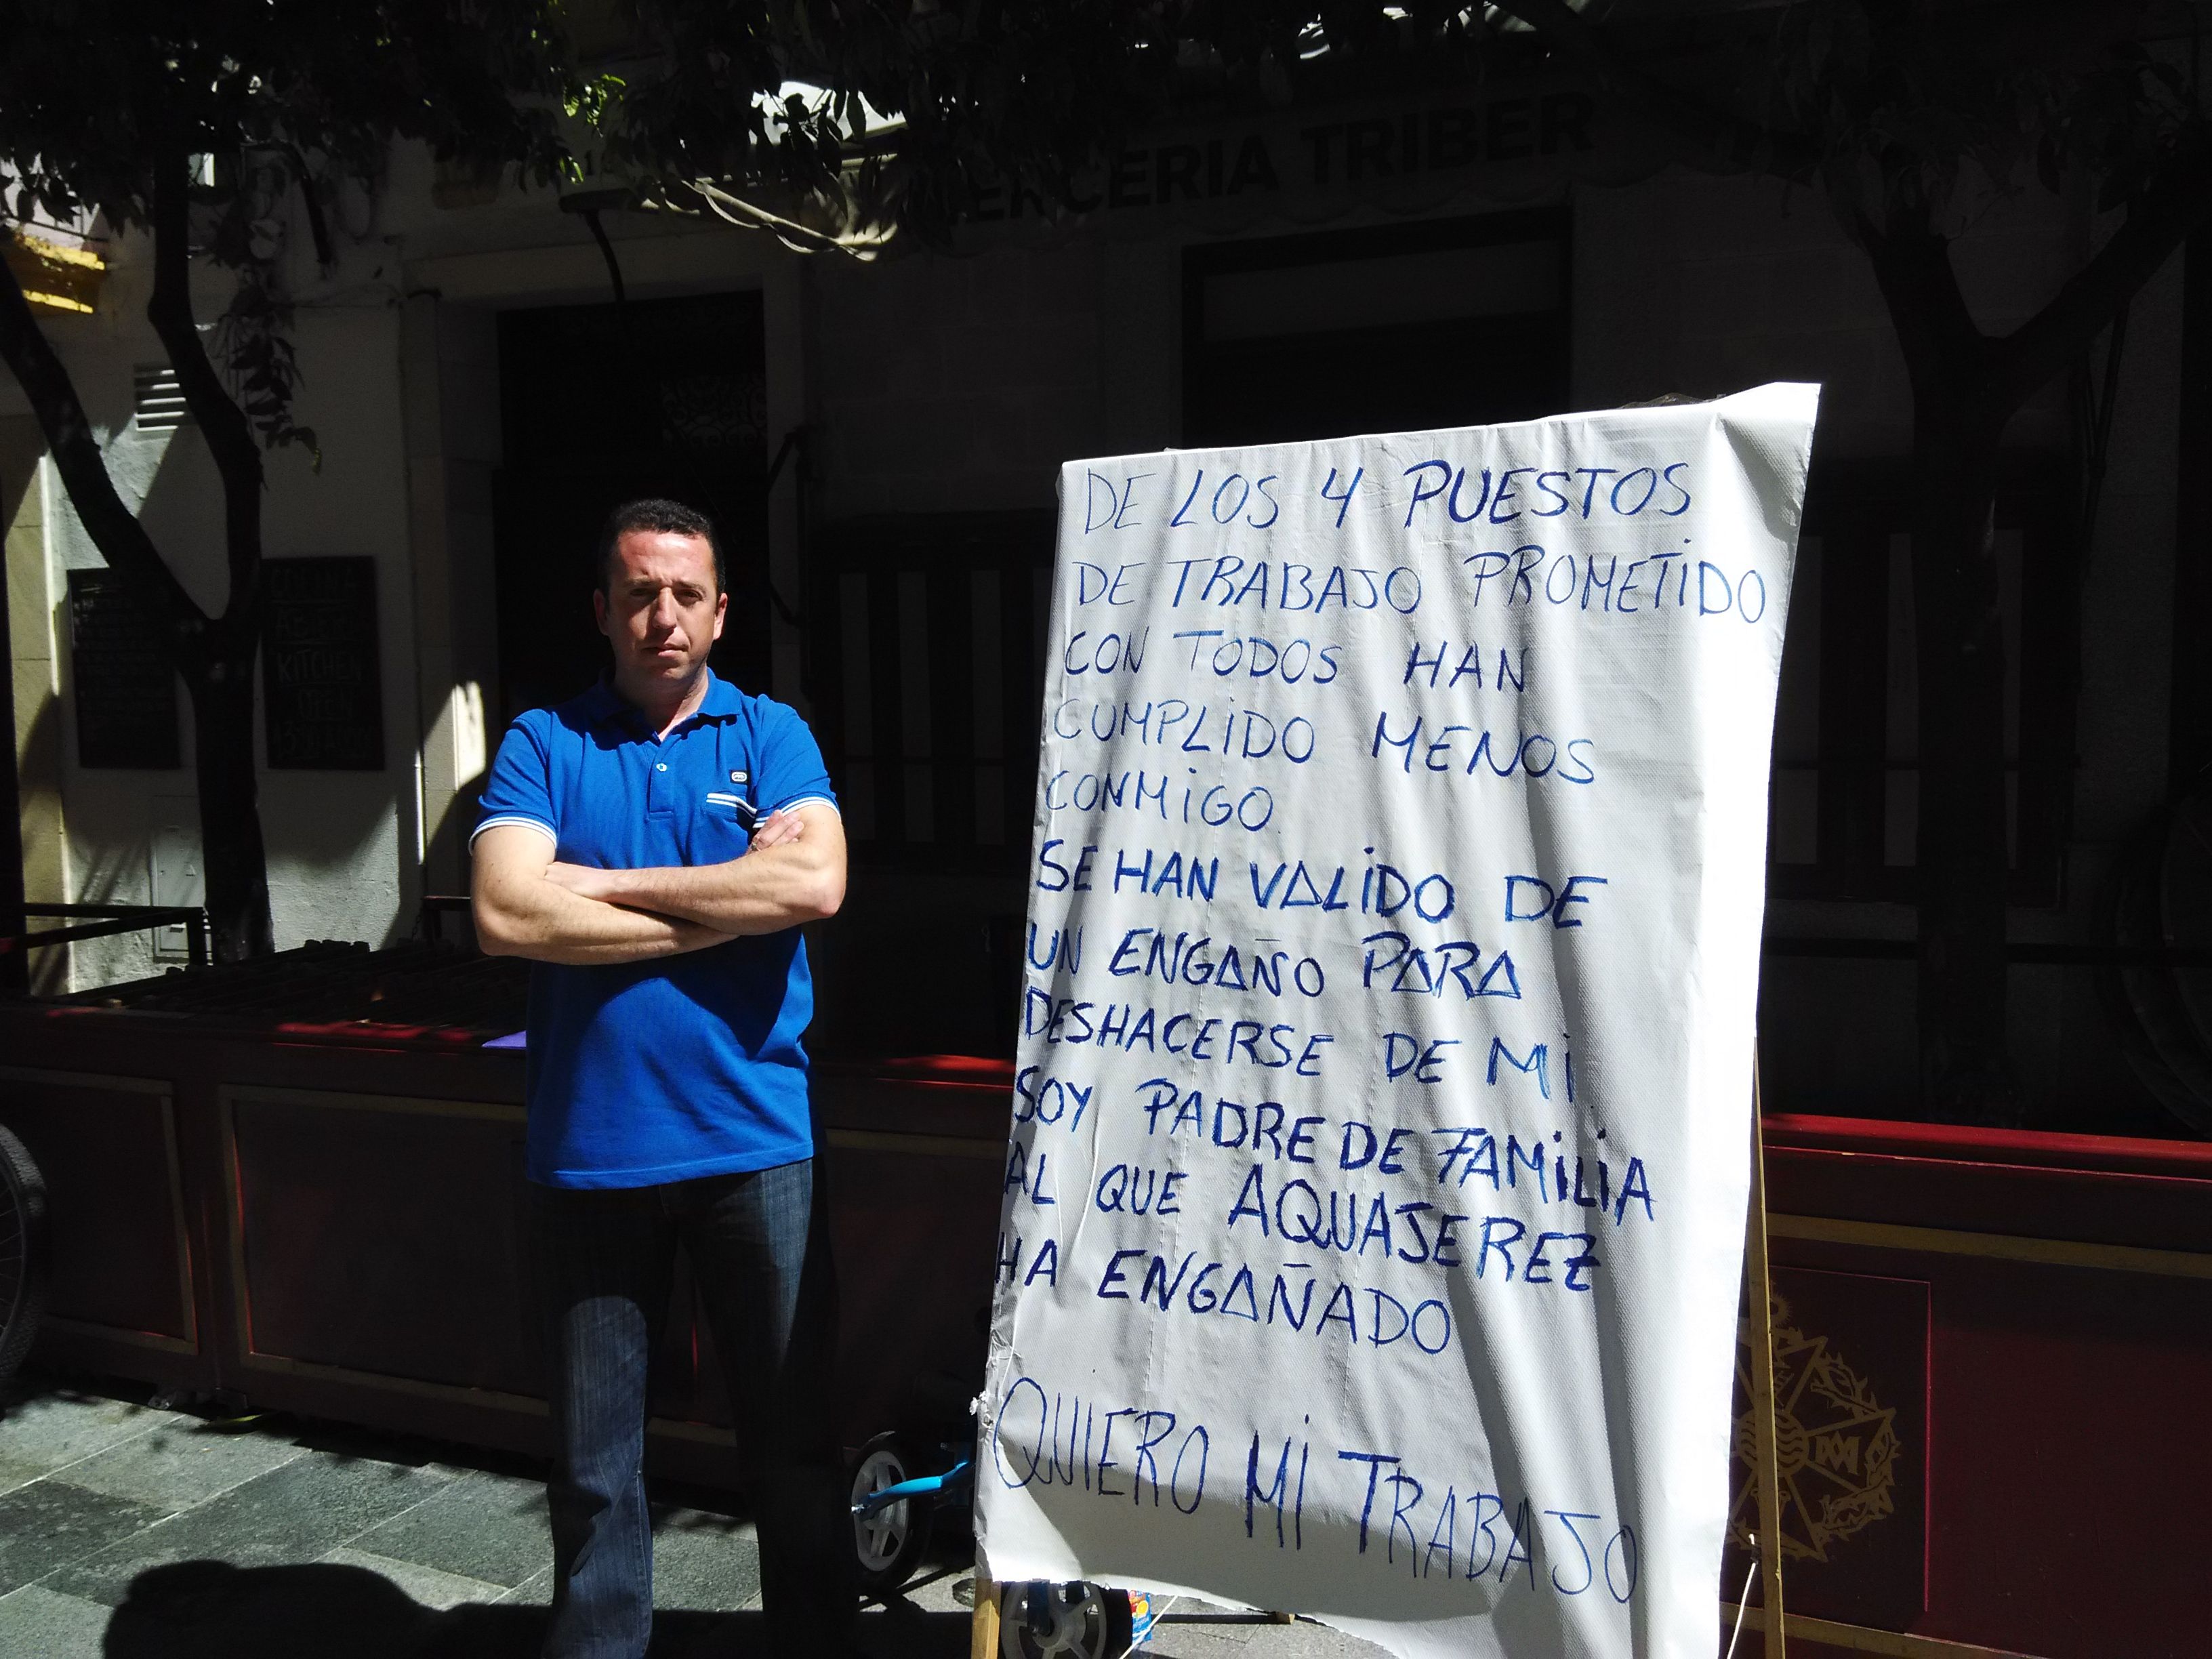 MERCERIA TRIBER
KITCHEN
OPEN
DE LOS 4 PUESTOS
DE TRABAJO PROMETIDO
CON TODOS HAN
CUMPLIDO MENOS
CONMIGO.
SE HAN VALIDO DE
UN ENGAÑO PARA
DESHACERSE DE MI.
SOY PADRE DE FAMILIA
AL QUE AQUAJEREZ
HA ENGAÑADO
QUIERO MI TRABAJO